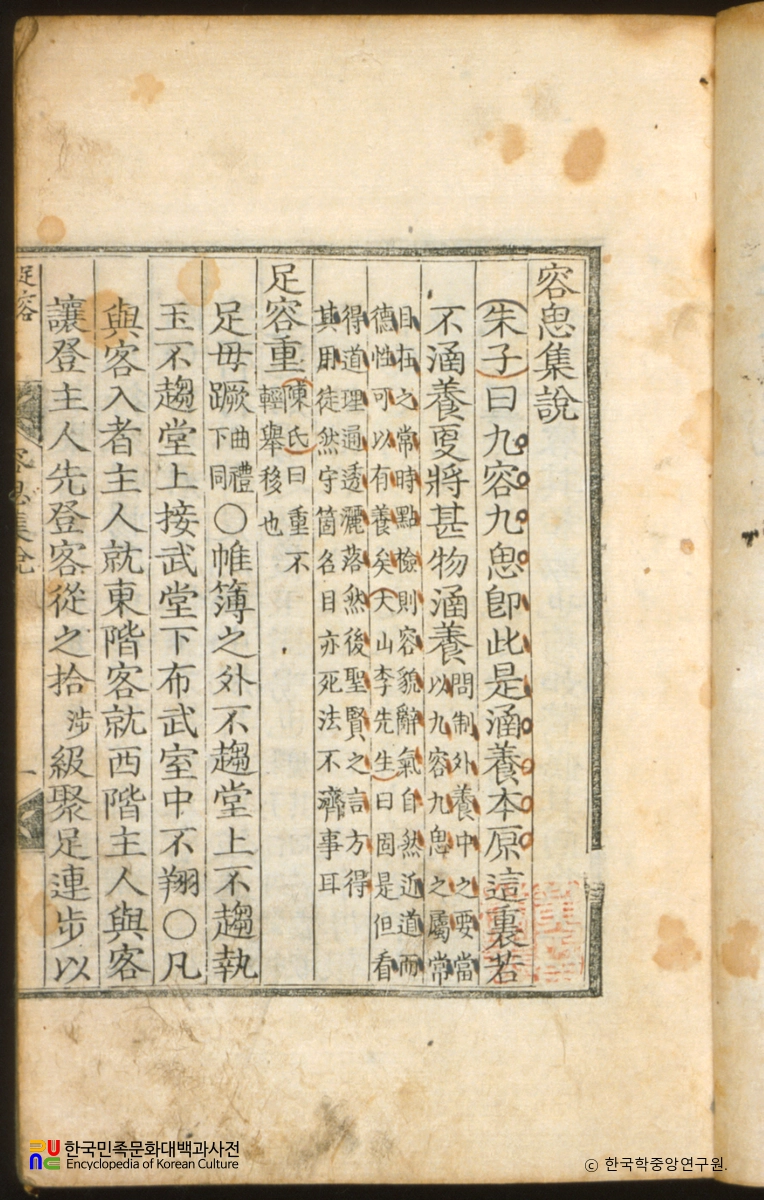 容恖集說
朱子曰九容九恖卽此是涵養本原這裏若
不涵養更將甚物涵養問制外養中之要當
以九容九恖之屬常
目在之常時點檢則容貌辭氣自然近道而
德性可以有養矣天山李先生曰固是但看
得道理通透灑落然後聖賢之言方得
其用徒然守箇名目亦死法不濟事耳
足容重陳氏曰重不
輕舉移也
足毋蹶曲禮
下同
○帷簿之外不趨堂上不趨執
玉不趨堂上接武堂下布武室中不翔○凡
與客入者主人就東階客就西階主人與客
讓登主人先登客從之拾涉級聚足連步以
足容
容恖集說
一
한국민족문화대백과사전
Encyclopedia of Korean Culture
ⓒ 한국학중앙연구원.